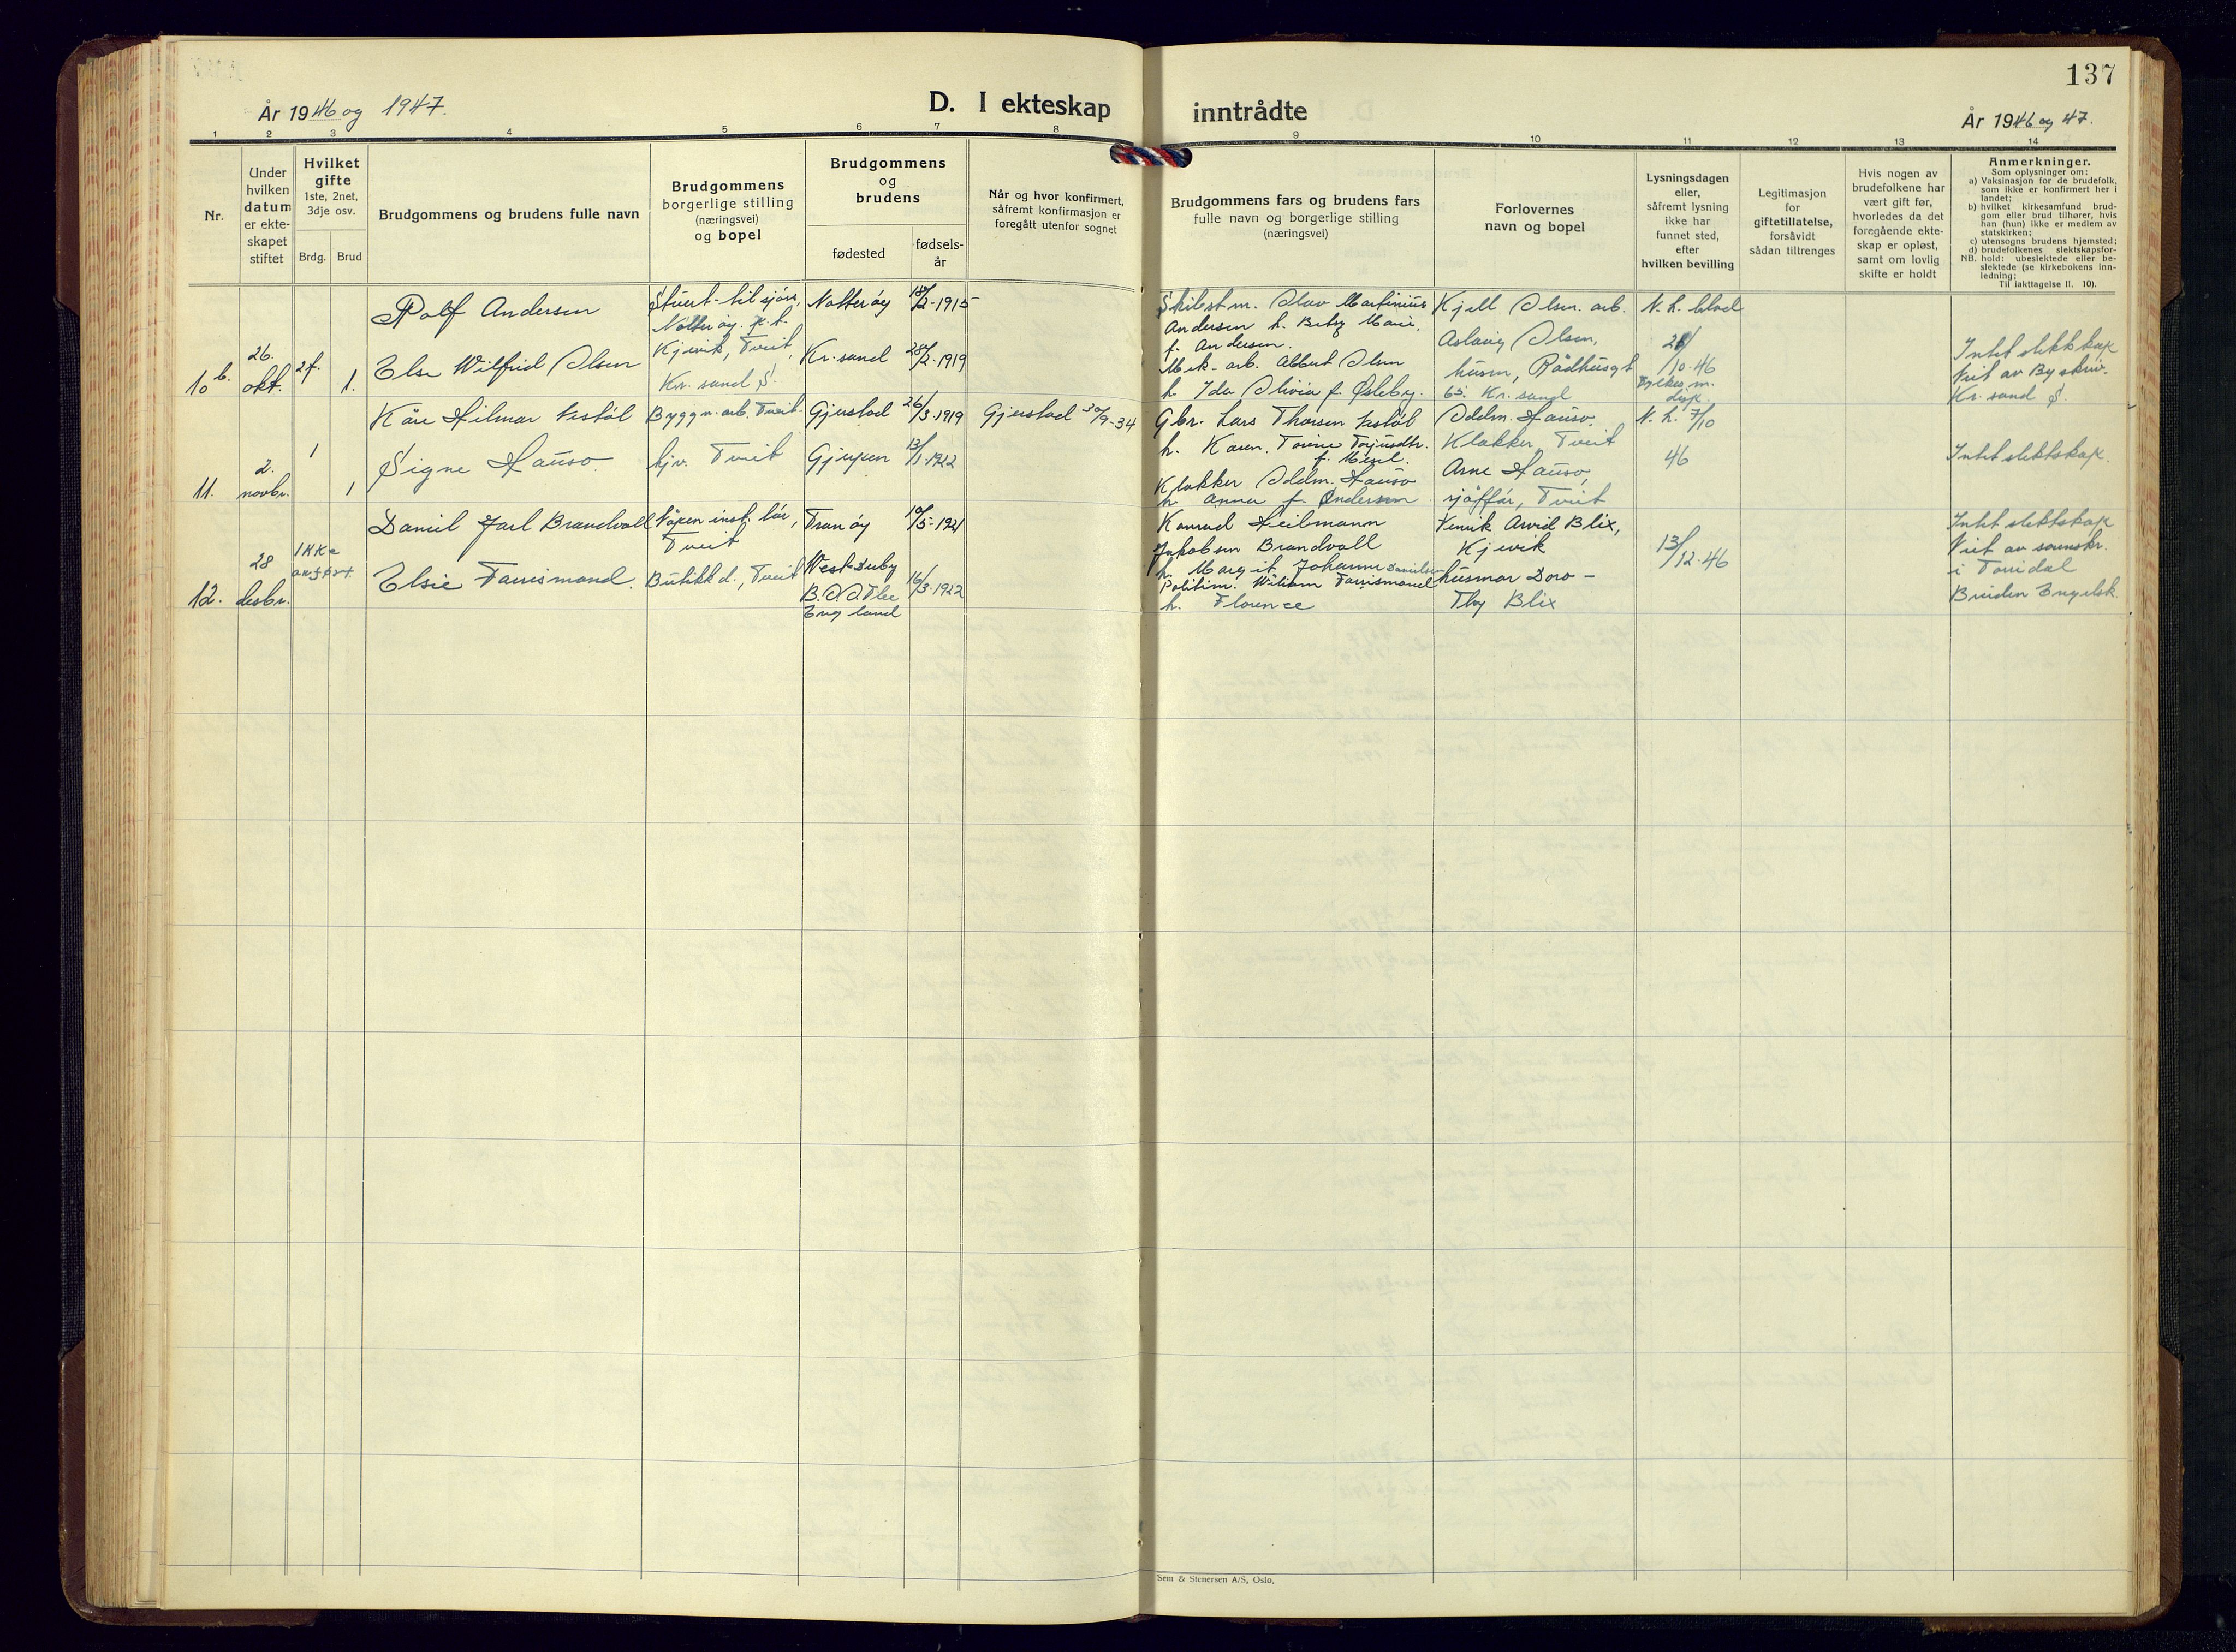 137
År 1946 og 1947.
D. I ekteskap inntrådte
År 1946 og 47.
1 2 3 4 5 6 7 8 9 10 11 12 13 14
Nr.
Under hvilken datum er ekteskapet stiftet
Hvilket gifte
1ste, 2net, 3dje osv.
Brdg. Brud
Brudgommens og brudens fulle navn
Brudgommens borgerlige stilling (næringsvei) og bopel
Brudgommens og brudens
fødested
fødsels-år
Når og hvor konfirmert, såfremt konfirmasjon er foregått utenfor sognet
Brudgommens fars og brudens fars fulle navn og borgerlige stilling (næringsvei)
Forlovernes navn og bopel
Lysningsdagen eller, såfremt lysning ikke har funnet sted, efter hvilken bevilling
Legitimasjon for giftetillatelse, forsåvidt sådan tiltrenges
Hvis nogen av brudefolkene har vært gift før, hvorledes da det foregående ekteskap er opløst, samt om lovlig skifte er holdt
Anmerkninger.
Som oplysninger om:
a) Vaksinasjon for de brudefolk, som ikke er konfirmert her i landet;
b) hvilket kirkesamfund brudgom eller brud tilhører, hvis han (hun) ikke er medlem av statskirken;
c) utensogns brudens hjemsted;
d) brudefolkenes slektskapsforhold: ubeslektede eller beslektede (se kirkebokens innledning;
NB. Til iakttagelse II. 10).
10 b. 26. okt. 2f. 1.
Rolf Andersen
Stuert - til sjøss, Nøtterøy. p.t. Kjevik, Tveit,
Nøtterøy
18/2-1915
Else Wilfrid Olsen
Kr. sand S.
Kr. sand
28/2-1919
Olav Martinius
Andersen h. Betzy Marie,
f. Andersen.
Mek. arb. Albert Olsen
h. Ida Olivia f. Østeby.
Kjell Olsen. arb.
Aslaug Olsen,
husm, Rådhusgt
65. Kr. sand
N. h. blad
/10-46
Intet slektskap
Viet av Byskriv.
Kr. sand S.
11. 2. novbr. 1 1
Kåre Hilmar Vestøl
Byggn. arb. Tveit.
Gjerstad
26/3-1919
Gjerstad 30/9-34
Signe Hauso.
hjv. Tveit
Gjerpen
13/1-1922
Gbr. Lars Thorsen Vestøl
h. Karen Torine Torjusdtr.
Klokker Oddm. Hauso
h. Anna f. Andersen
Oddm. Hauso.
Klokker, Tveit
Arne Hauso,
sjåfför, Tveit
N. h. 7/10
46
Intet slektskap.
12. 28 desbr. Ikke anført
Daniel Jarl Brandvoll
Våpen inst. lør, Tveit
Tranøy
10/5-1921
Elsie Farrismond.
Butikkd., Tveit
England
16/3-1922
Konrad Heilmann
Jakobsen Brandvoll
h. Margit Johanne Danielsen
Politim. William Farrismond
h. Florence
Henrik Arvid Blix,
Kjevik
husmor Doro-
thy Blix
13/12-46
Intet slektskap
Viet av sorenskr.
i Torridal
Bruden Engelsk.
Sem & Stenersen A/S, Oslo.